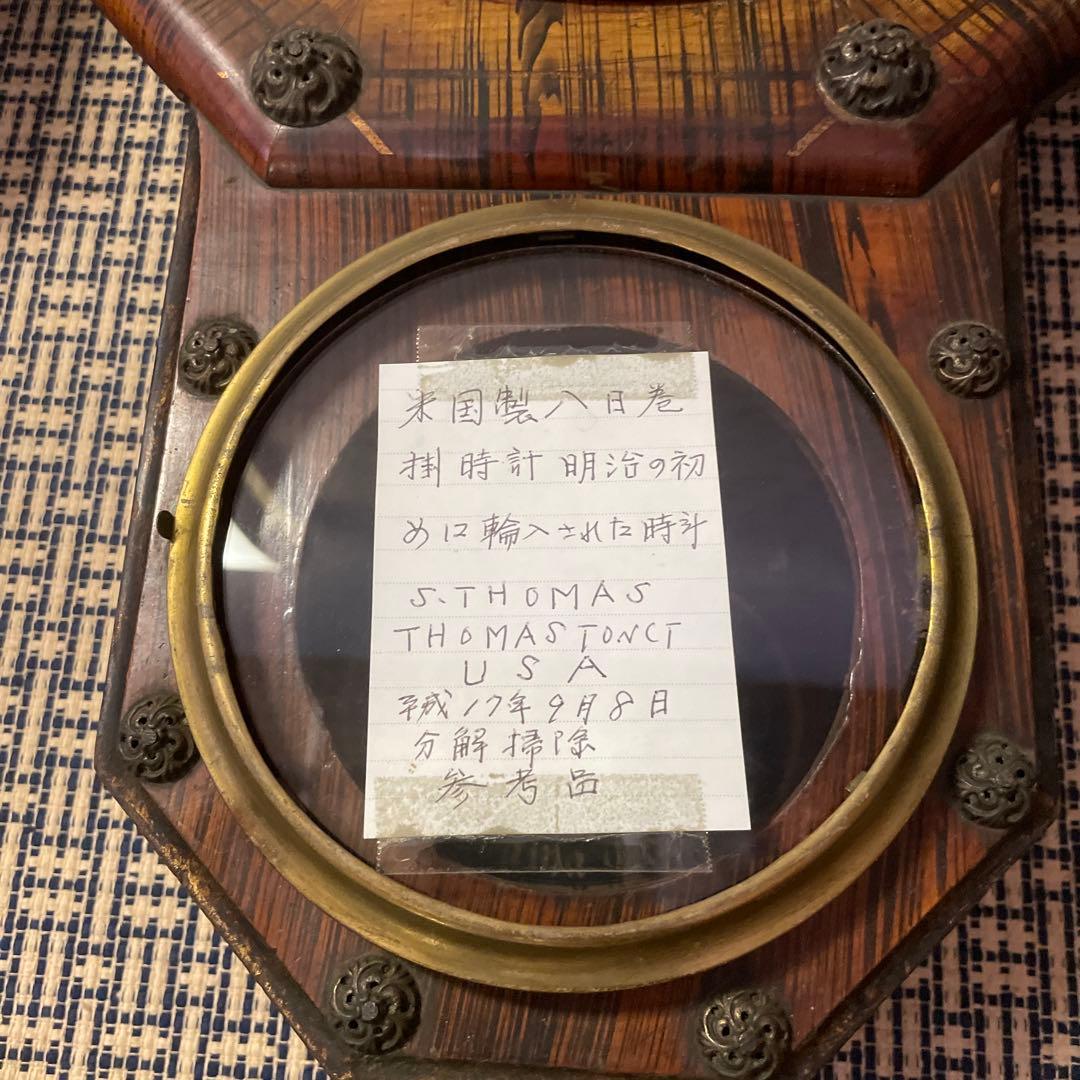 米国製八日巻
掛時計 明治の初
めに輪入された時計
S.THOMAS
THOMASTONCT
USA
平成17年9月8日
分解掃除
参考品